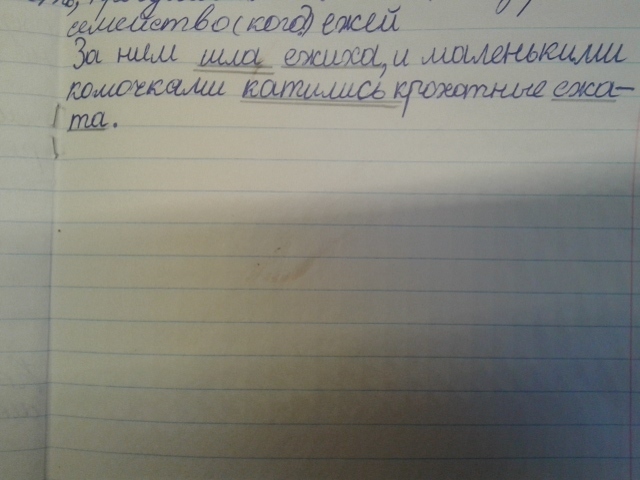 семейство (кого) ежей
За ним шла ежиха, и маленькими
комочками катились крохотные ежа-
та.